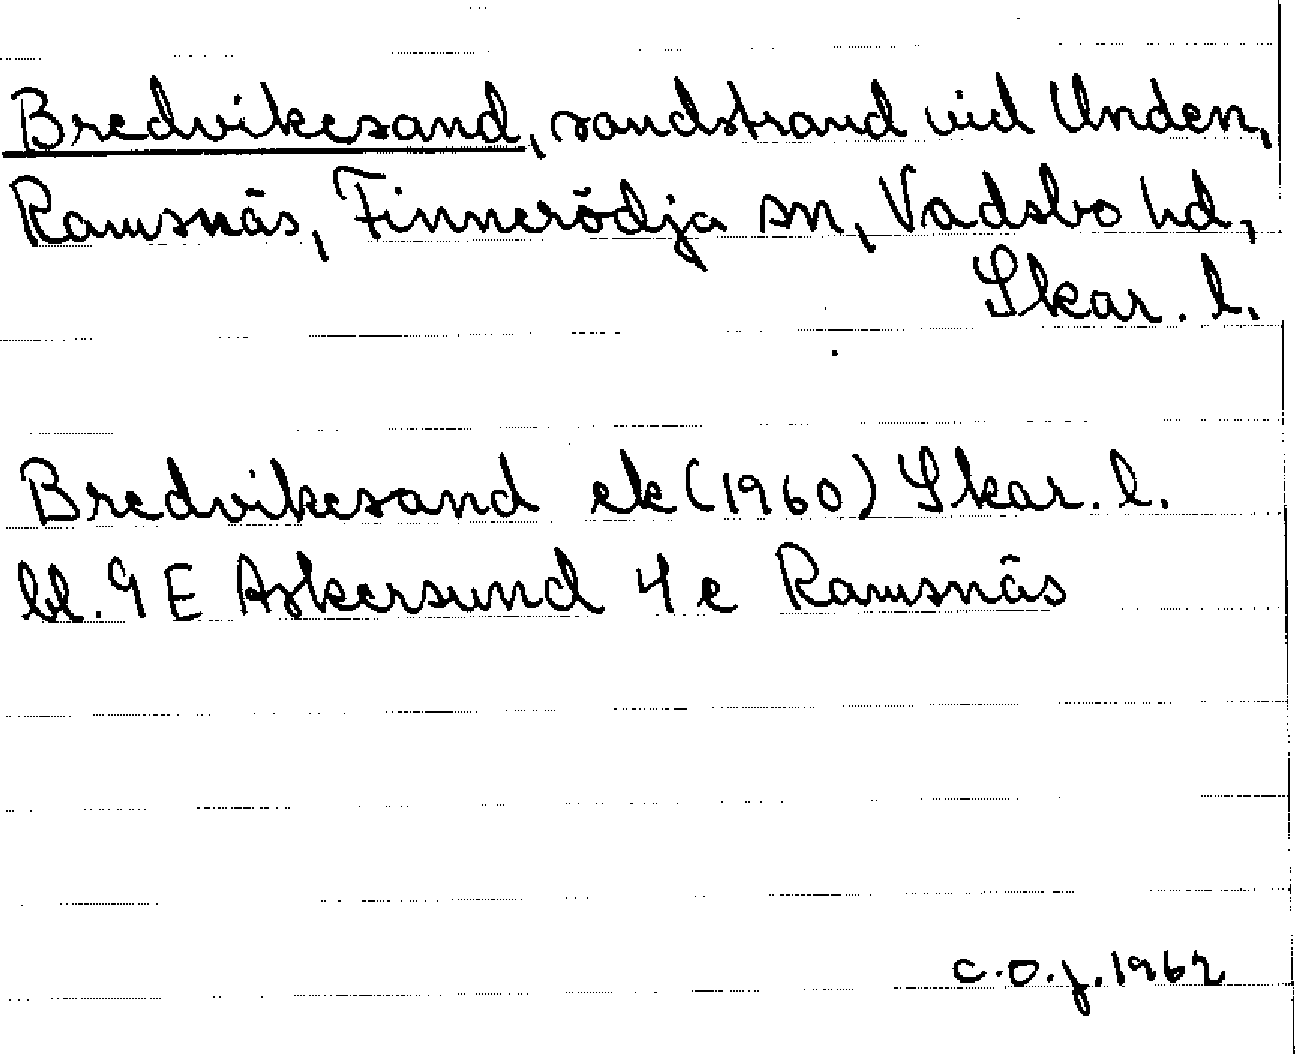 Bredvikesand, sandstrand vid Unden,
Ramsnäs, Finnerödja sn, Vadsbo hd,
Skar. l.
Bredvikesand ek (1960) Skar. l.
bl. 9 E Askersund 4 e Ramsnäs
C.O.J. 1962